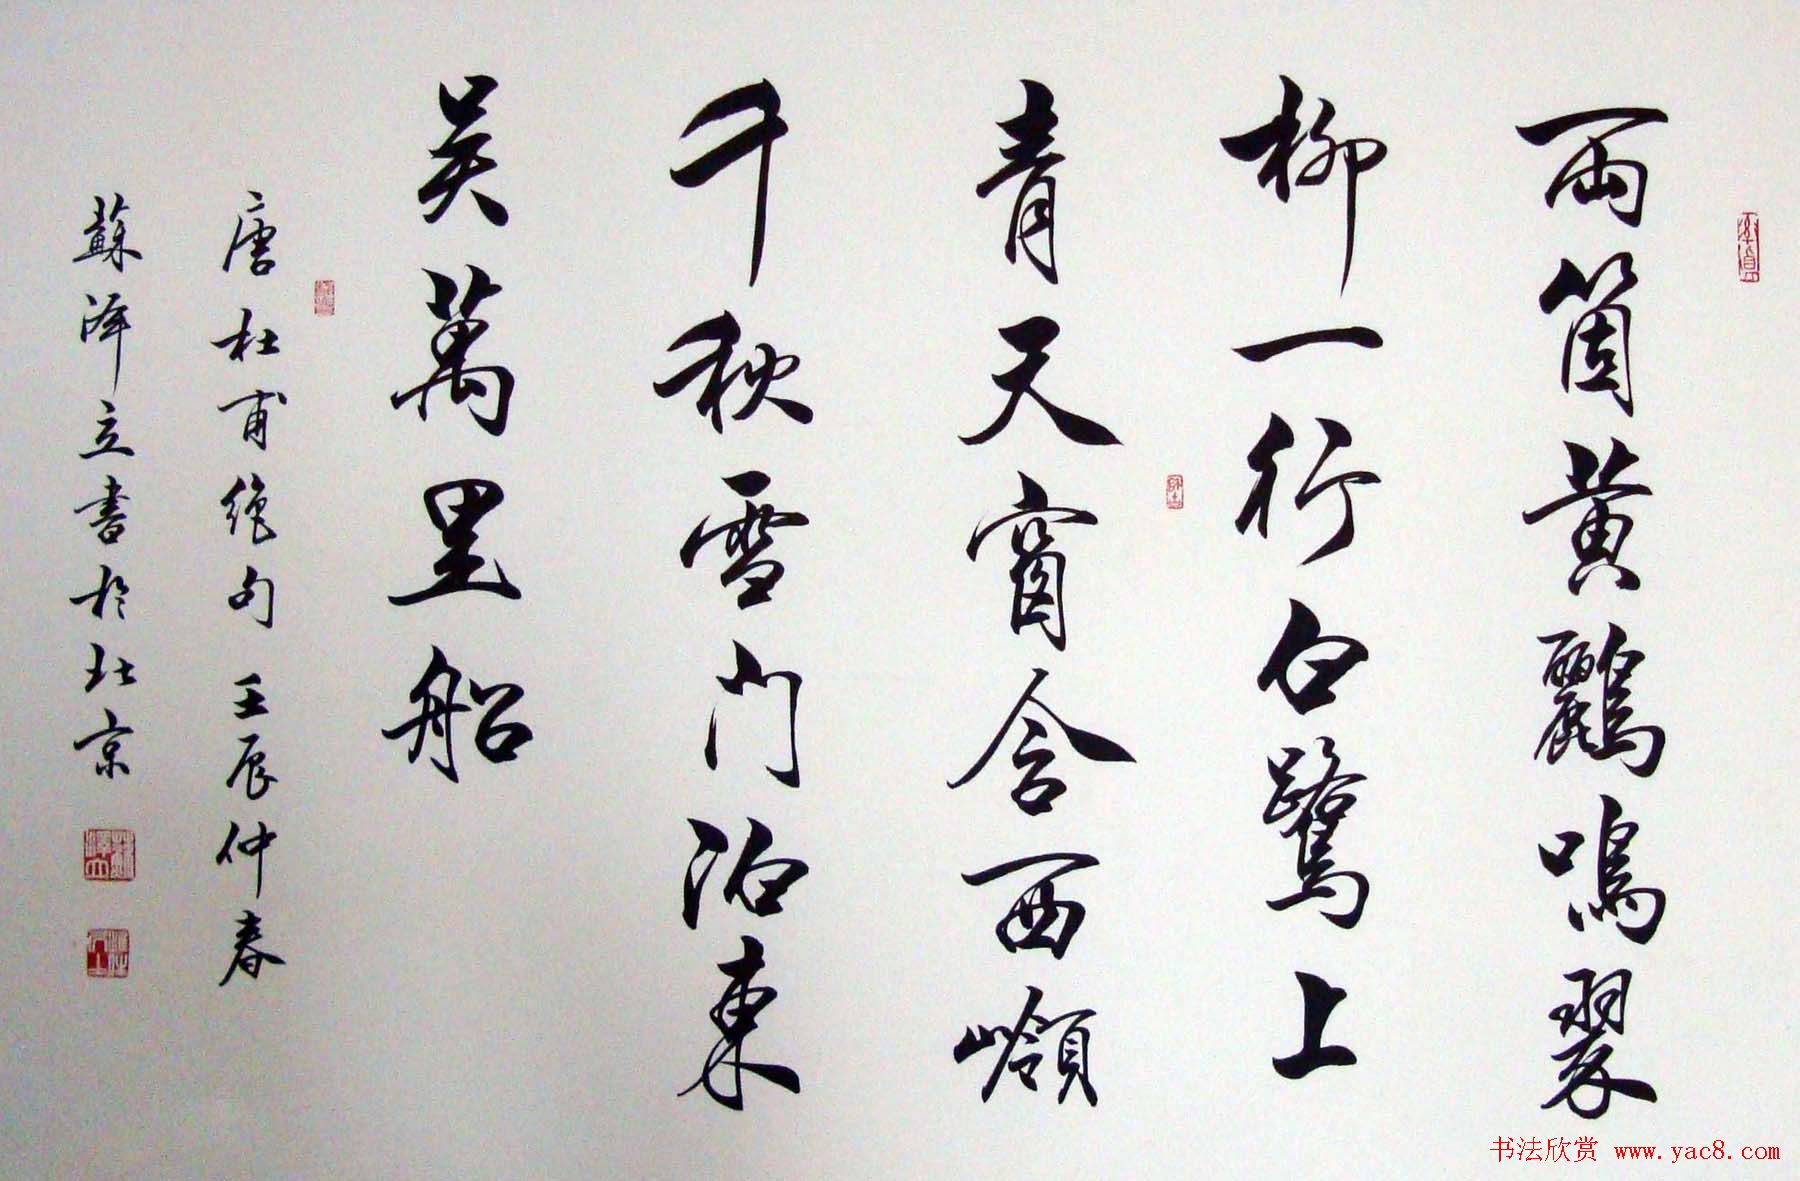 兩箇黃鸝鳴翠
柳一行白鷺上
青天窗含西嶺
千秋雪門泊東
吳萬里船
唐杜甫絕句壬辰仲春
蘇澤立書於北京
書法欣赏 www.yac8.com